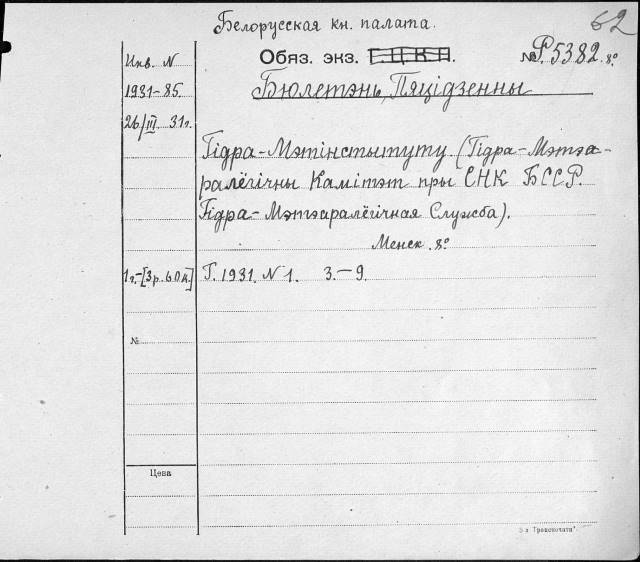 Белорусская кн. палата.
62
Обяз. экз. Г.Ц.К.П. № Р.5382. 8°
Инв. N
1931-85.
26/III 31г.
Бюлетэнь, Пяцідзенны
Гідра-Мэтінстытуту (Гідра-Мэтэа-
ралёгічны Камітэт пры СНК БССР.
Гідра-Мэтэаралёгічная Служба).
Менск. 8°
1 г.-[3 р. 60 к.] Г. 1931. N 1. 3.-9.
№
Цена